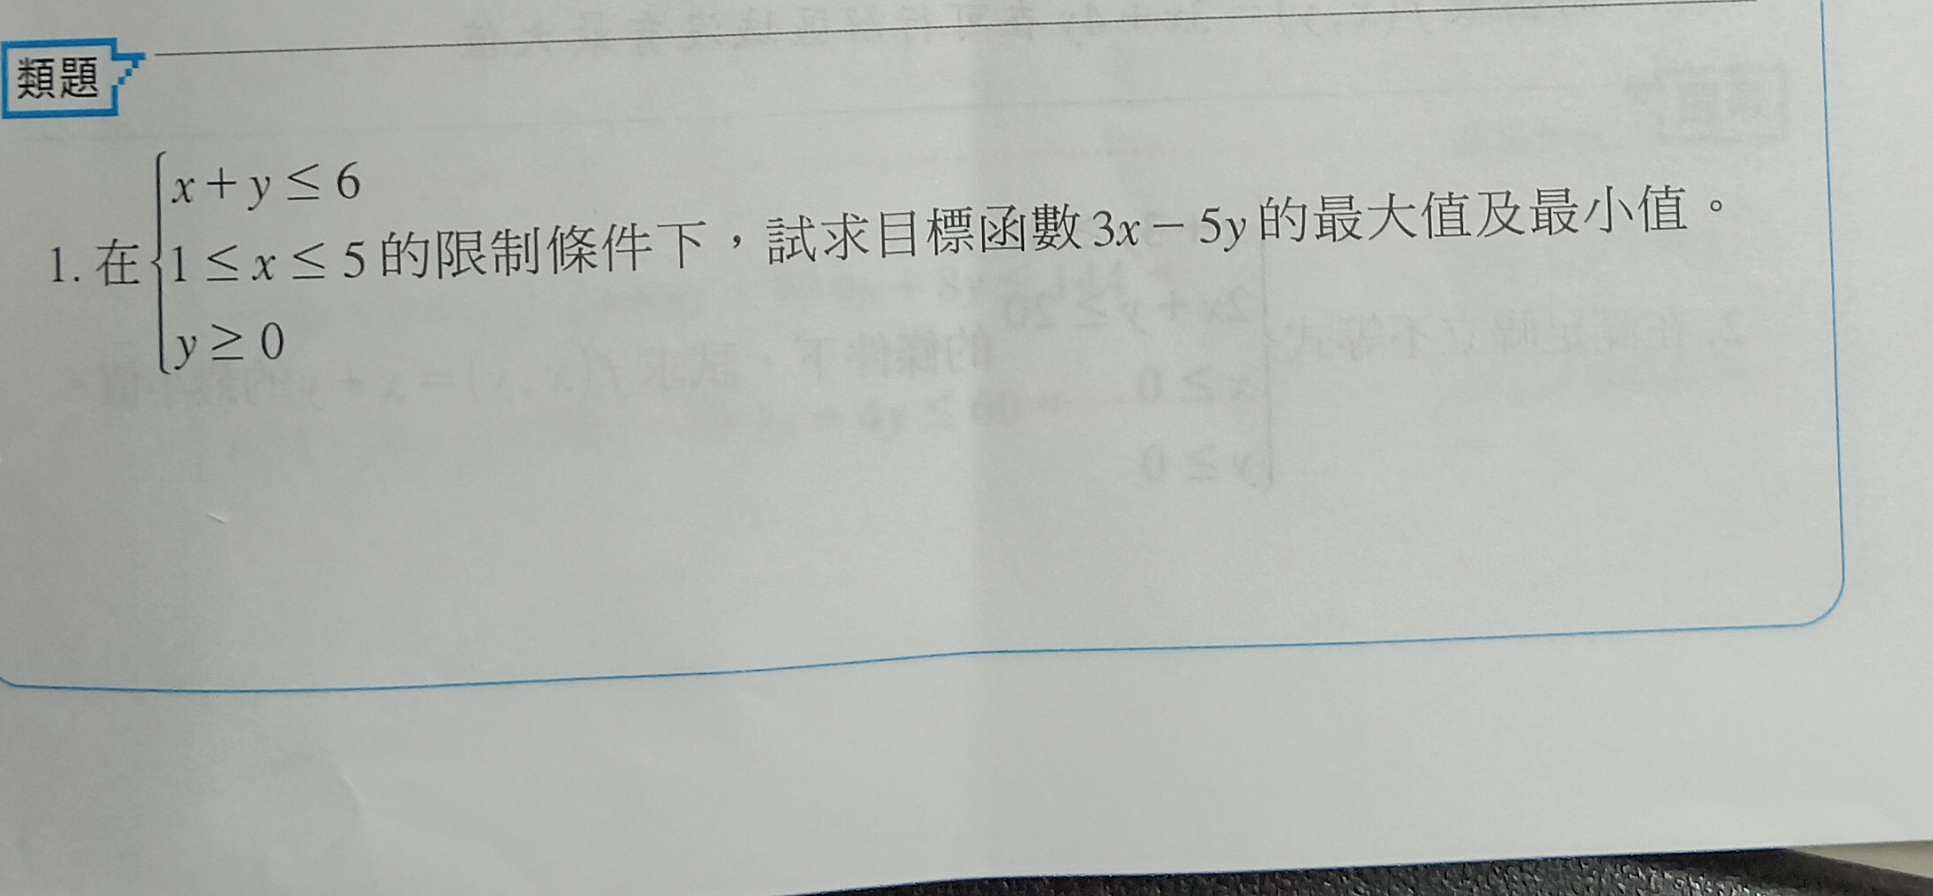 類題
1. 在{x + y ≤ 6
1 ≤ x ≤ 5 的限制條件下，試求目標函數 3x − 5y 的最大值及最小值。
y ≥ 0